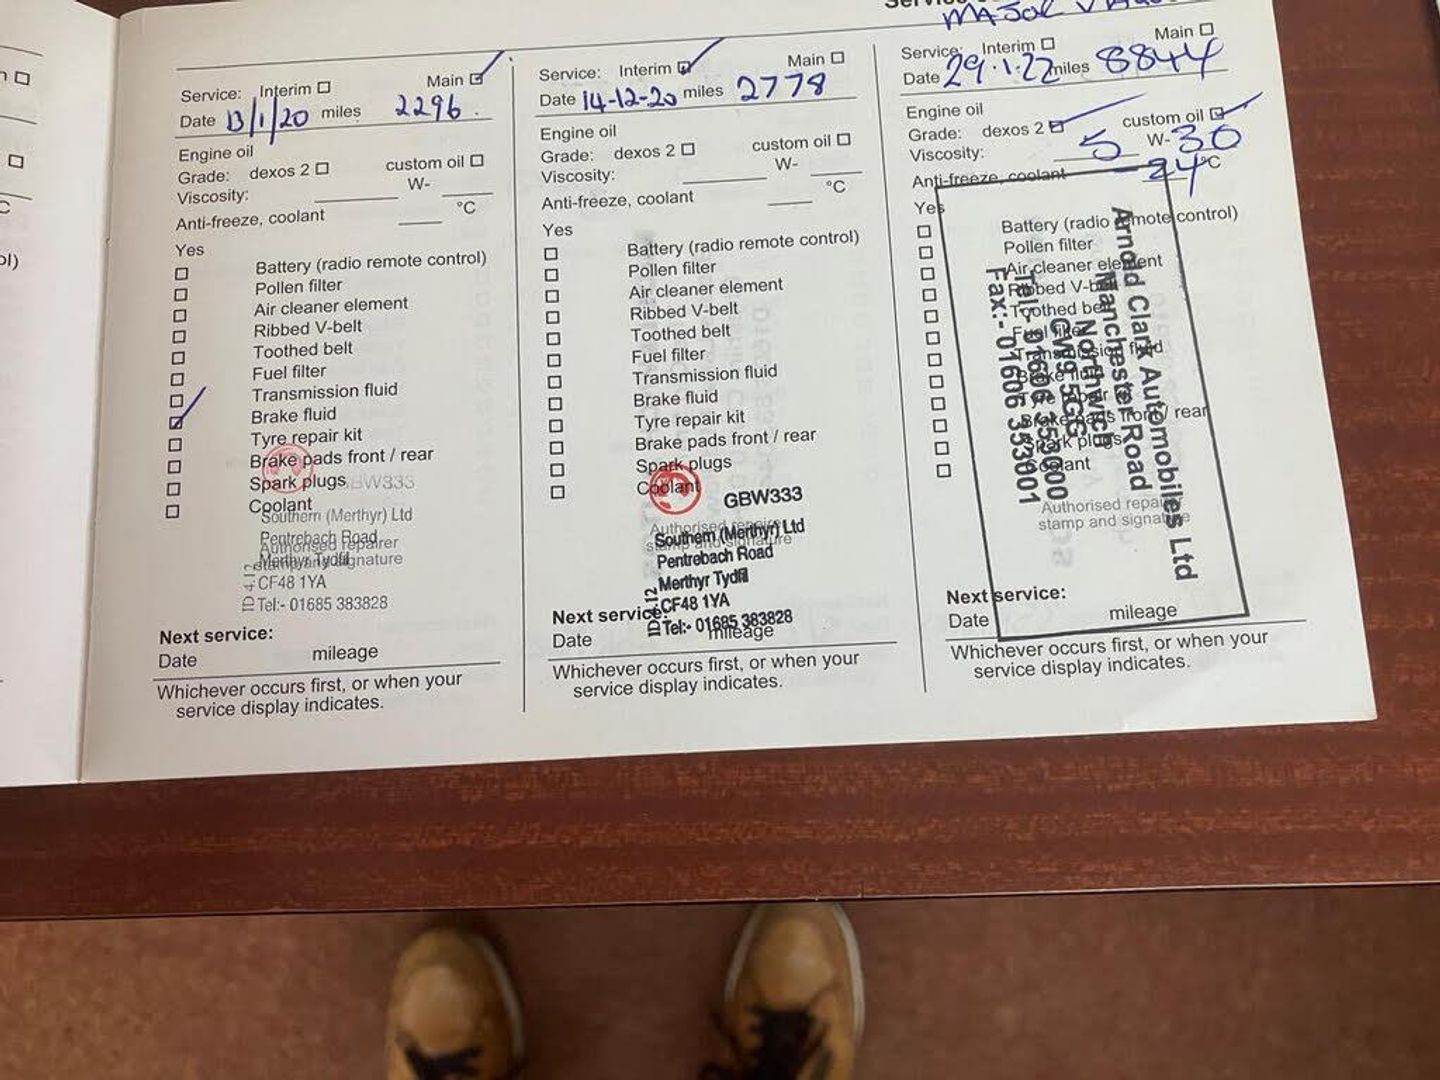 MAJOR
Service: Interim Main
Date 13/1/20 miles 2296
Engine oil
Grade: dexos 2 custom oil
Viscosity: W-
Anti-freeze, coolant °C
Yes
Battery (radio remote control)
Pollen filter
Air cleaner element
Ribbed V-belt
Toothed belt
Fuel filter
Transmission fluid
Brake fluid
Tyre repair kit
Brake pads front / rear
Spark plugs
Coolant
GBW333
Southern (Merthyr) Ltd
Pentrebach Road
Authorised repairer
Merthyr Tydfil
stamp and signature
CF48 1YA
Tel:- 01685 383828
Next service:
Date mileage
Whichever occurs first, or when your
service display indicates.
Service: Interim Main
Date 14-12-20 miles 2778
Engine oil
Grade: dexos 2 custom oil
Viscosity: W-
Anti-freeze, coolant °C
Yes
Battery (radio remote control)
Pollen filter
Air cleaner element
Ribbed V-belt
Toothed belt
Fuel filter
Transmission fluid
Brake fluid
Tyre repair kit
Brake pads front / rear
Spark plugs
Coolant
GBW333
Authorised repairer
Southern (Merthyr) Ltd
stamp and signature
Pentrebach Road
Merthyr Tydfil
CF48 1YA
Tel:- 01685 383828
Next service:
Date mileage
Whichever occurs first, or when your
service display indicates.
Service: Interim Main
Date 29.1.22 miles 8844
Engine oil
Grade: dexos 2 custom oil
Viscosity: 5 W- 30
Anti-freeze, coolant -24 °C
Yes
Battery (radio remote control)
Pollen filter
Air cleaner element
Ribbed V-belt
Toothed belt
Fuel filter
Transmission fluid
Brake fluid
Tyre repair kit
Brake pads front / rear
Spark plugs
Coolant
Arnold Clark Automobiles Ltd
Manchester Road
Northwich
CW9 5GG
Tel:- 01606 353000
Fax:- 01606 353001
Authorised repairer
stamp and signature
Next service:
Date mileage
Whichever occurs first, or when your
service display indicates.